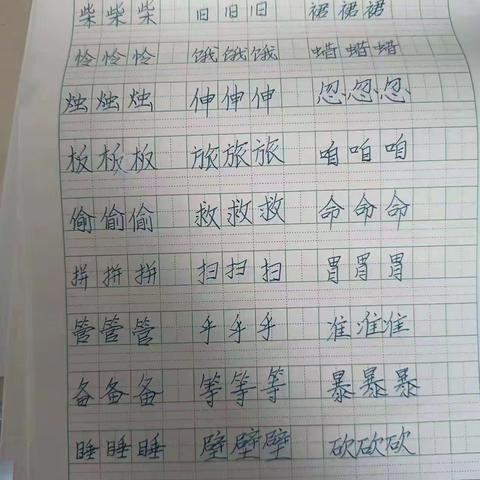 柴柴柴 旧旧旧 裙裙裙
怜怜怜 饿饿饿 蜡蜡蜡
烛烛烛 伸伸伸 忽忽忽
板板板 旅旅旅 咱咱咱
偷偷偷 救救救 命命命
拼拼拼 扫扫扫 胃胃胃
管管管 乎乎乎 准准准
备备备 等等等 暴暴暴
睡睡睡 壁壁壁 砍砍砍